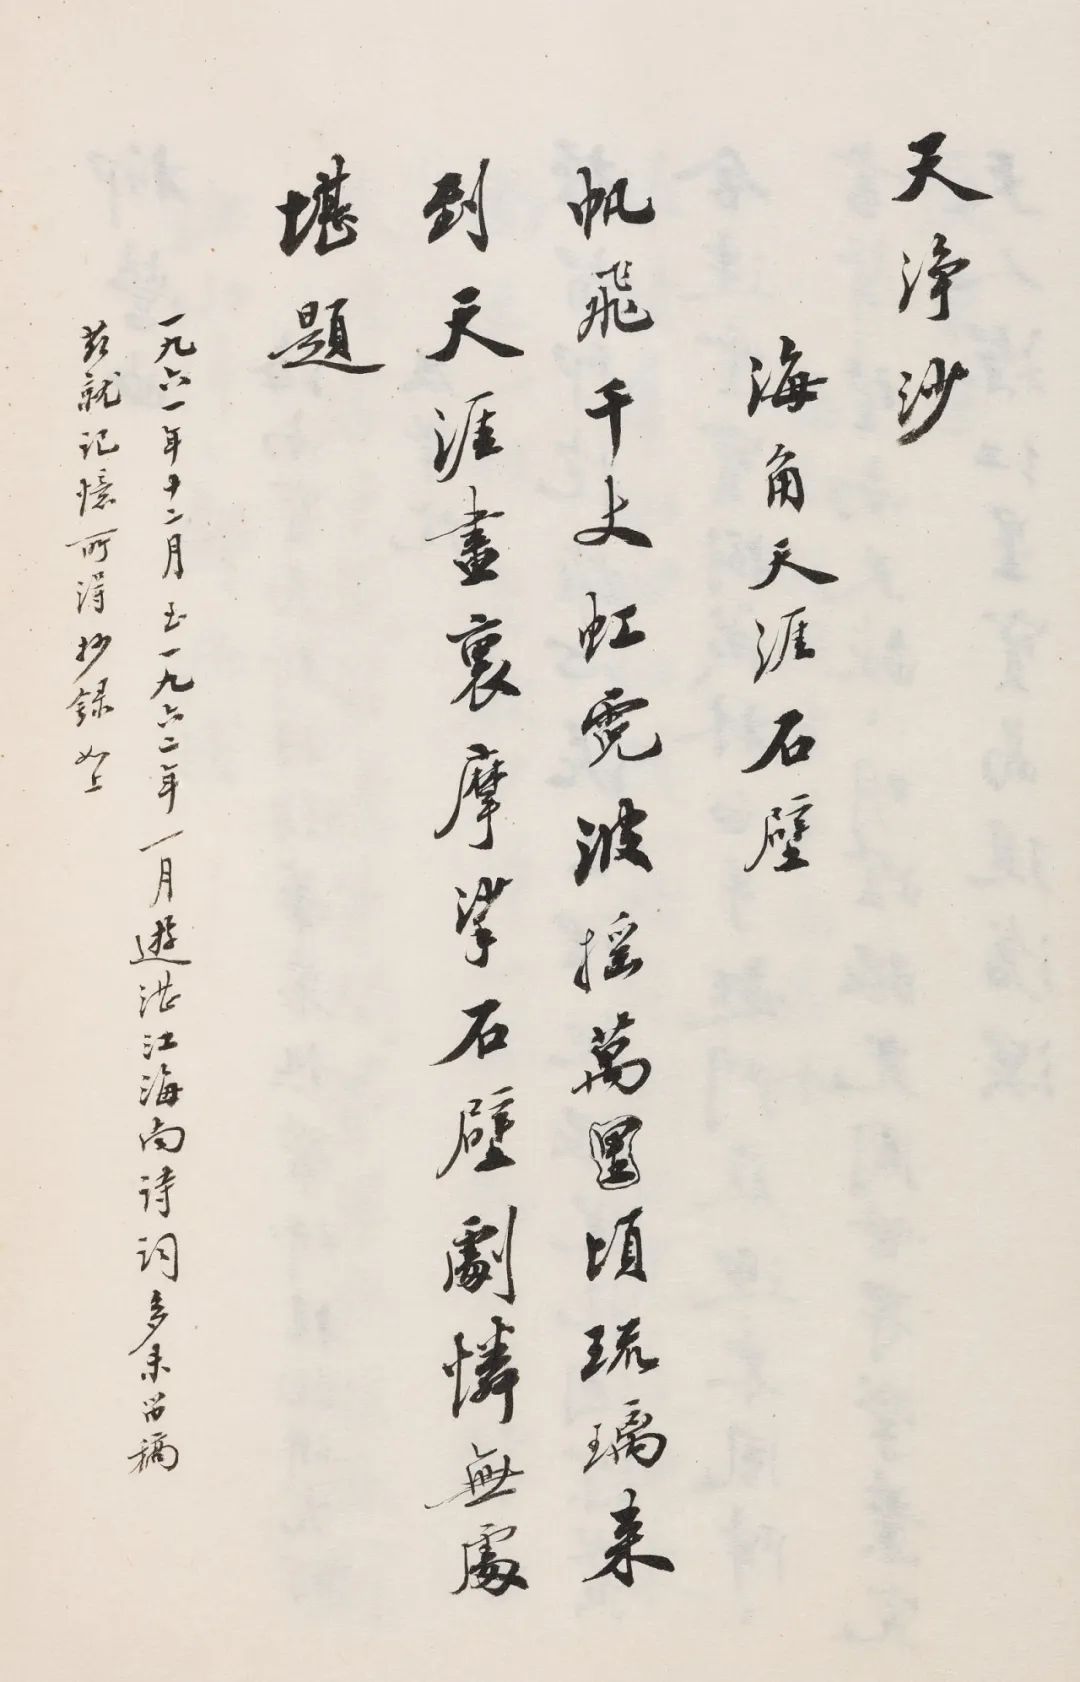 天淨沙
海角天涯石壁
帆飛千丈虹霓波摇萬里頃琉璃来
到天涯畫裏摩挲石壁劇憐無處
堪題
一九六一年十二月至一九六二年一月遊湛江海南诗词多未留稿
兹就记憶所得抄録如上